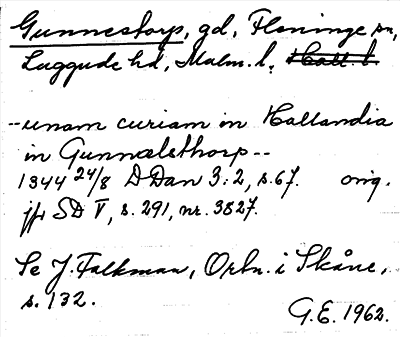 Gunnestorp, gd, Fleninge sn,
Luggude hd, Malm. l., Hall. l.
--unam curiam in Hallandia
in Gunnælsthorp--
1344 24/8 DDan 3:2, s.67. orig.
jfr SD V, s. 291, nr. 3827.
Se J. Falkman, Ortn. i Skåne,
s. 132.
G.E. 1962.